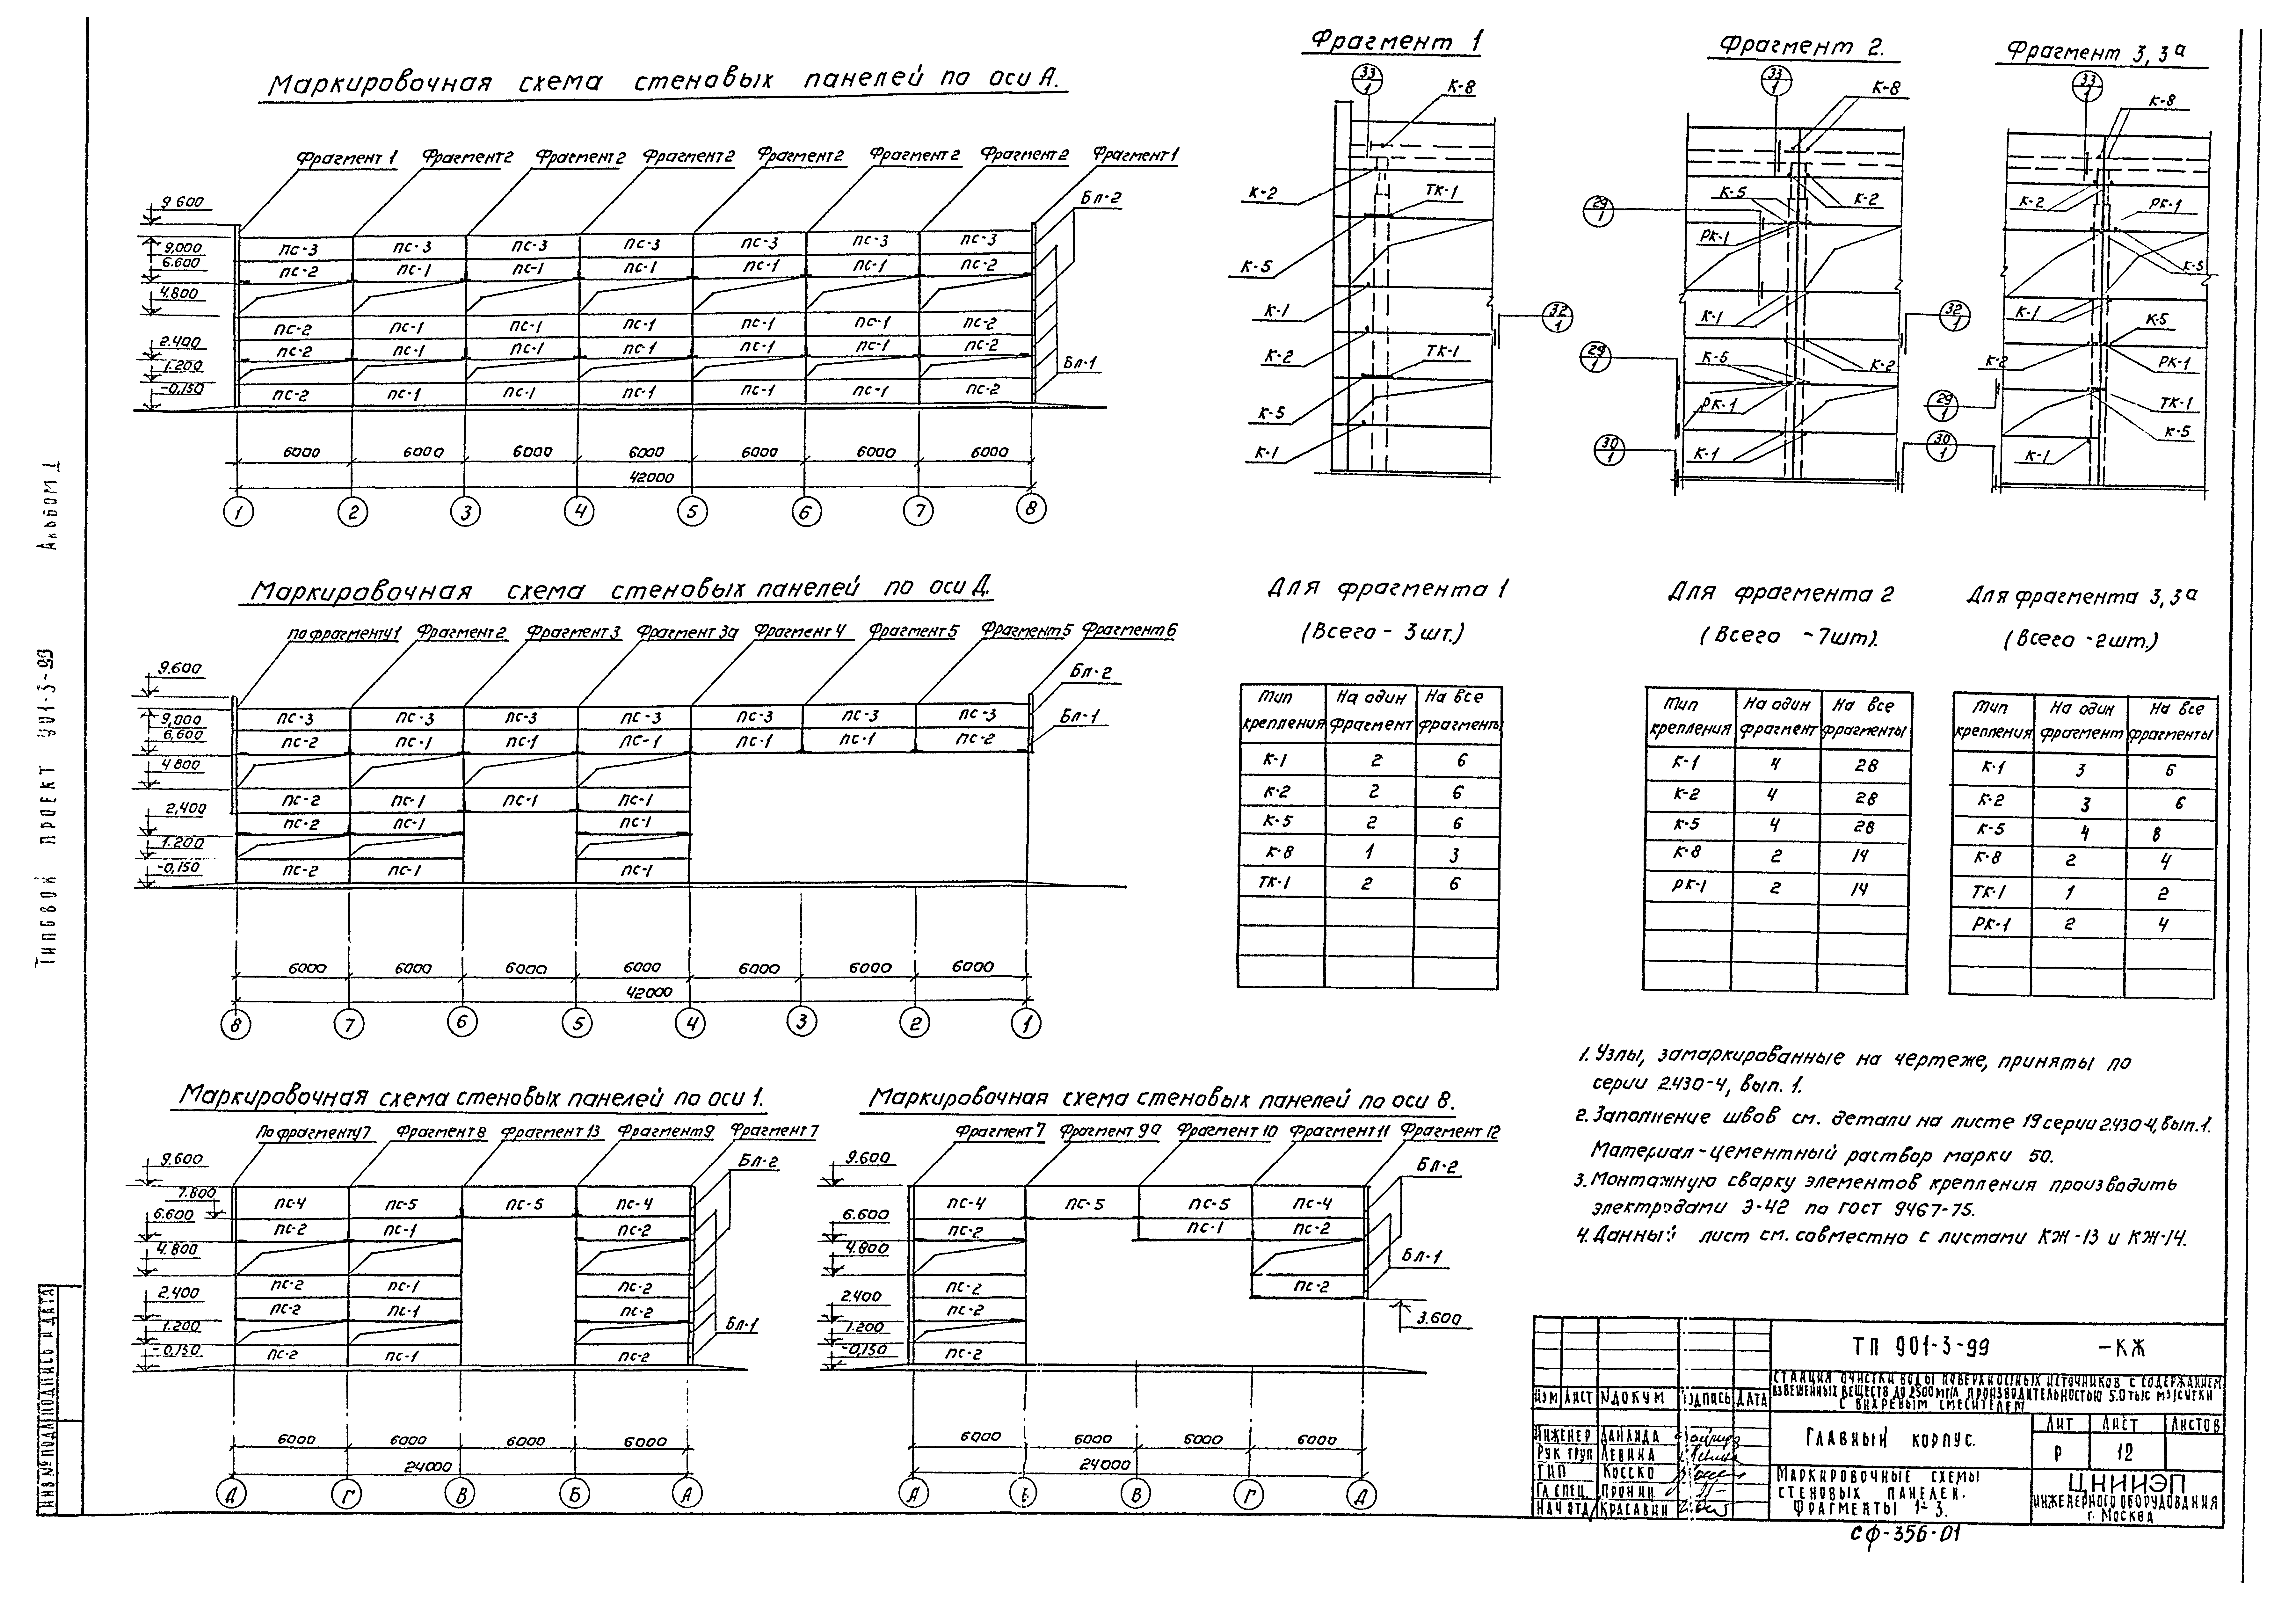 Альбом I
Типовой проект 901-3-99
Маркировочная схема стеновых панелей по оси А.
Фрагмент 1 Фрагмент 2 Фрагмент 2 Фрагмент 2 Фрагмент 2 Фрагмент 2 Фрагмент 2 Фрагмент 1
9 600
Бл-2
9,000 ПС-3 ПС-3 ПС-3 ПС-3 ПС-3 ПС-3 ПС-3
6.600 ПС-2 ПС-1 ПС-1 ПС-1 ПС-1 ПС-1 ПС-2
4.800
ПС-2 ПС-1 ПС-1 ПС-1 ПС-1 ПС-1 ПС-2
2.400 ПС-2 ПС-1 ПС-1 ПС-1 ПС-1 ПС-1 ПС-2
1.200 Бл-1
-0,150 ПС-2 ПС-1 ПС-1 ПС-1 ПС-1 ПС-1 ПС-2
6000 6000 6000 6000 6000 6000 6000
42000
1 2 3 4 5 6 7 8
Фрагмент 1
33
1
К-8
К-2
ТК-1
К-5
К-1
32
1
К-2
ТК-1
К-5
К-1
Фрагмент 2.
33
1
К-8
К-5
К-2
29
1
РК-1
К-1
32
1
29
1
К-5
К-2
РК-1
30
1
К-1
Фрагмент 3, 3а
33
1
К-8
К-2
РК-1
К-5
К-1
К-5
К-2
РК-1
29
1
ТК-1
К-5
30
1
К-1
Маркировочная схема стеновых панелей по оси Д.
По фрагменту 1 Фрагмент 2 Фрагмент 3 Фрагмент 3а Фрагмент 4 Фрагмент 5 Фрагмент 5 Фрагмент 6
9.600
Бл-2
9,000 ПС-3 ПС-3 ПС-3 ПС-3 ПС-3 ПС-3 ПС-3 Бл-1
6,600 ПС-2 ПС-1 ПС-1 ПС-1 ПС-1 ПС-1 ПС-2
4 800
2,400 ПС-2 ПС-1 ПС-1 ПС-1
ПС-2 ПС-1 ПС-1
1.200
-0,150 ПС-2 ПС-1 ПС-1
6000 6000 6000 6000 6000 6000 6000
42000
8 7 6 5 4 3 2 1
Для фрагмента 1
(Всего - 3 шт.)
Тип крепления На один фрагмент На все фрагменты
К-1 2 6
К-2 2 6
К-5 2 6
К-8 1 3
ТК-1 2 6
Для фрагмента 2
(Всего -7шт).
Тип крепления На один фрагмент На все фрагменты
К-1 4 28
К-2 4 28
К-5 4 28
К-8 2 14
РК-1 2 14
Для фрагмента 3, 3а
(Всего -2шт.)
Тип крепления На один фрагмент На все фрагменты
К-1 3 6
К-2 3 6
К-5 4 8
К-8 2 4
ТК-1 1 2
РК-1 2 4
Маркировочная схема стеновых панелей по оси 1.
По фрагменту 7 Фрагмент 8 Фрагмент 13 Фрагмент 9 Фрагмент 7
9.600
Бл-2
7.800 ПС-4 ПС-5 ПС-5 ПС-4
6.600 ПС-2 ПС-1 ПС-2
4.800
ПС-2 ПС-1 ПС-2
2,400 ПС-2 ПС-1 ПС-2
1.200 Бл-1
-0,150 ПС-2 ПС-1 ПС-2
6000 6000 6000 6000
24000
Д Г В Б А
Маркировочная схема стеновых панелей по оси 8.
Фрагмент 7 Фрагмент 9а Фрагмент 10 Фрагмент 11 Фрагмент 12
9.600
Бл-2
ПС-4 ПС-5 ПС-5 ПС-4
6.600 ПС-2 ПС-1 ПС-2
4.800 Бл-1
ПС-2 ПС-2
2.400 ПС-2
3.600
1.200
-0,150 ПС-2
6000 6000 6000 6000
24000
А Б В Г Д
1. Узлы, замаркированные на чертеже, приняты по
серии 2.430-4, вып. 1.
2. Заполнение швов см. детали на листе 19 серии 2.430-4, вып.1.
Материал-цементный раствор марки 50.
3. Монтажную сварку элементов крепления производить
электродами Э-42 по ГОСТ 9467-75.
4. Данный лист см. совместно с листами КЖ-13 и КЖ-14.
ТП 901-3-99 -КЖ
Станция очистки воды поверхностных источников с содержанием
взвешенных веществ до 2500мг/л производительностью 5.0 тыс м3/сутки
с вихревым смесителем
Изм Лист №докум Подпись Дата
Инженер
Рук груп Левина
ГИП Косско
Гл спец. Пронин
Нач отд Красавин
Главный корпус.
Лит Лист Листов
Р 12
Маркировочные схемы
стеновых панелей.
Фрагменты 1÷3.
ЦНИИЭП
инженерного оборудования
г. Москва
СФ-356-01
Инв № подл Подпись и дата